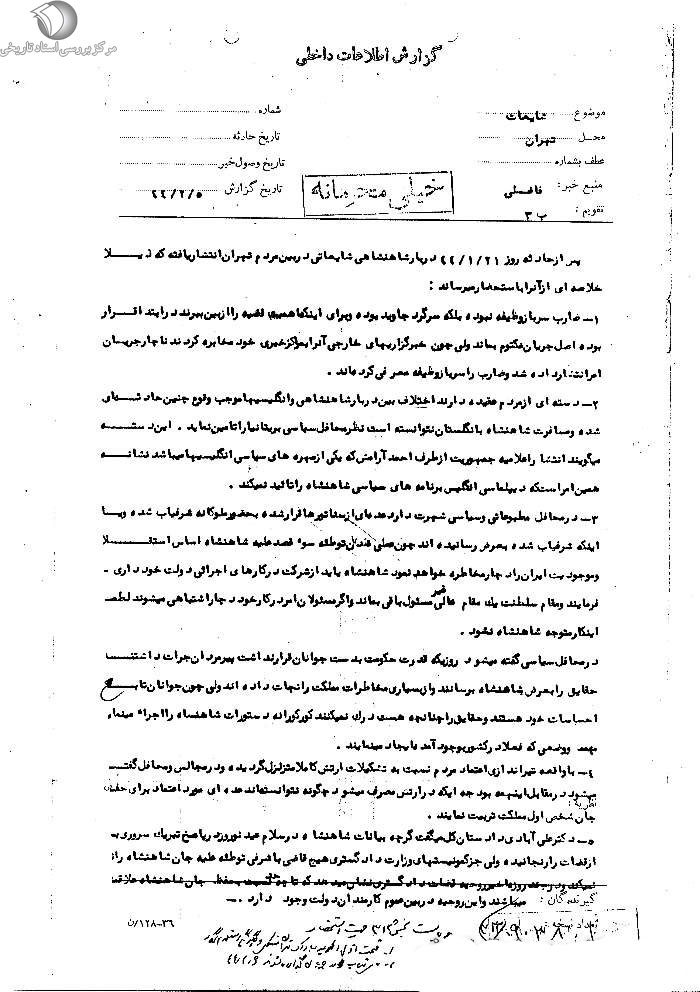 مرکز بررسی اسناد تاریخی
گزارش اطلاعات داخلی
موضوع شایعات
شماره
محل تهران
تاریخ حادثه
عطف بشماره
تاریخ وصول خبر
منبع خبر:
تاریخ گزارش ۴۴/۲/۵
تقویم: ب ۳
خیلی محرمانه
پس از حادثه روز ۴۴/۱/۲۱ دربار شاهنشاهی شایعاتی در بین مردم تهران انتشار یافته که ذیلا
خلاصه ای از آنرا باستحضار میرساند:
۱- ضارب سرباز وظیفه نبوده بلکه سرگرد جاوید بوده و برای اینکه اهمیت قضیه را از بین ببرند در ابتدا قرار
بوده اصل جریان مکتوم بماند ولی چون خبرگزاریهای خارجی آنرا بمراکز خبری خود مخابره کردند ناچار جریان
امر انتشار داده شد و ضارب را سرباز وظیفه معرفی کرده اند.
۲- دسته ای از مردم عقیده دارند اختلاف بین دربار شاهنشاهی و انگلیسیها موجب وقوع چنین حادثه ای
شده و مسافرت شاهنشاه بانگلستان نتوانسته است نظر محافل سیاسی بریتانیا را تامین نماید. این دسته
میگویند انتشار اعلامیه جمهوریت از طرف احمد آرامش که یکی از مهره های سیاسی انگلیسیها میباشد نشانه
همین امر است که دیپلماسی انگلیس برنامه های سیاسی شاهنشاه را تائید نمیکند.
۳- در محافل مطبوعاتی و سیاسی شهرت دارد عده ای از سناتورها قرار شده بحضور ملوکانه شرفیاب شده و یا
اینکه شرفیاب شده بعرض رسانیده اند چون عملی شدن توطئه سوء قصد علیه شاهنشاه اساس استقلال
و موجودیت ایران را دچار مخاطره خواهد نمود شاهنشاه باید از شرکت در کارهای اجرائی دولت خودداری
فرمایند و مقام سلطنت یک مقام عالی غیر مسئول باقی بماند و اگر مسئولان امر در کار خود دچار اشتباهی میشوند لطمه
اینکار متوجه شاهنشاه نشود.
در محافل سیاسی گفته میشود روزیکه قدرت حکومت بدست جوانان قرار نداشت پیرمردان جرات داشتند
حقایق را بعرض شاهنشاه برسانند و از بسیاری مخاطرات مملکت را نجات داده اند ولی چون جوانان تابع
احساسات خود هستند و حقایق را چنانچه هست درک نمیکنند کورکورانه دستورات شاهنشاه را اجراء مینمایند
وضعی که فعلا در کشور بوجود آمده ایجاد مینمایند.
۴- با واقعه تیراندازی اعتماد مردم نسبت به تشکیلات ارتش کاملا متزلزل گردیده و در مجالس و محافل گفته
میشود در مقابل اینهمه بودجه ایکه در ارتش مصرف میشود چگونه نتوانسته اند عده ای مورد اعتماد برای حفظ
نظریه:
جان شخص اول مملکت تربیت نمایند.
۵- دکتر علی آبادی دادستان کل میگفت گرچه بیانات شاهنشاه در سلام عید نوروز در پاسخ تبریک سروری
قضات را رنجانیده ولی جز کمونیستهای وزارت دادگستری هیچ قاضی با شرفی توطئه علیه جان شاهنشاه را
نمیکند و در چند روز اخیر روحیه قضات دادگستری نشان میدهد که تا چه نسبت بحفظ جان شاهنشاه علاقمند
گیرندگان: میباشند و این روحیه در بین عموم کارمندان دولت وجود دارد.
تعداد نسخه
۱۲۸-۳۶/ن